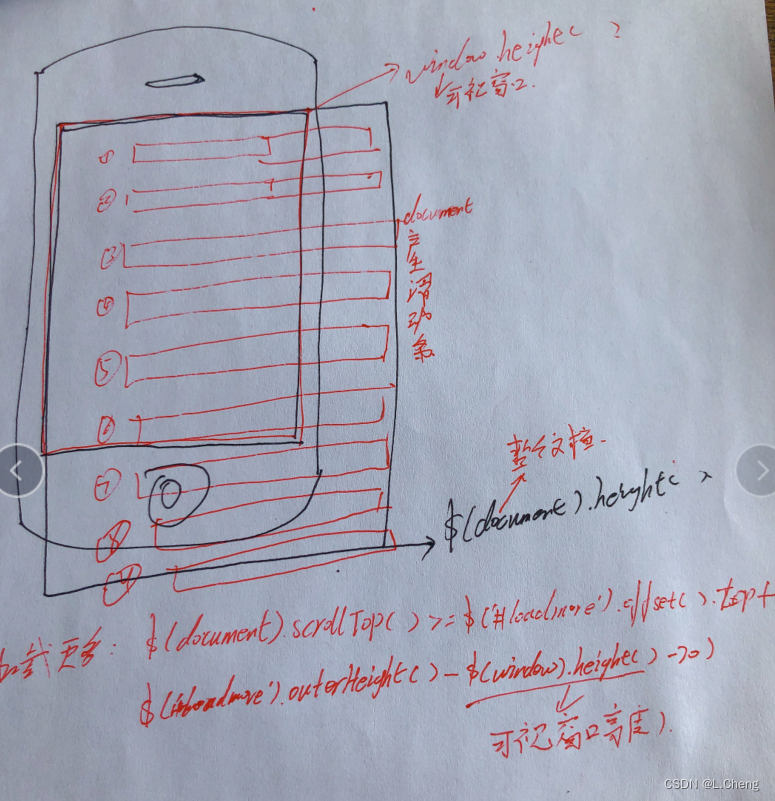 window.height( )
可视窗口.
①
②
document
③
产生滑动条
④
⑤
⑥
整个文档.
⑦
$(document).height( )
⑧
⑨
加载更多: $(document).scrollTop( ) >= $('#loadmore').offset( ).top +
$('#loadmore').outerHeight( ) - $(window).height( ) -20)
可视窗口高度).
CSDN @L.Cheng